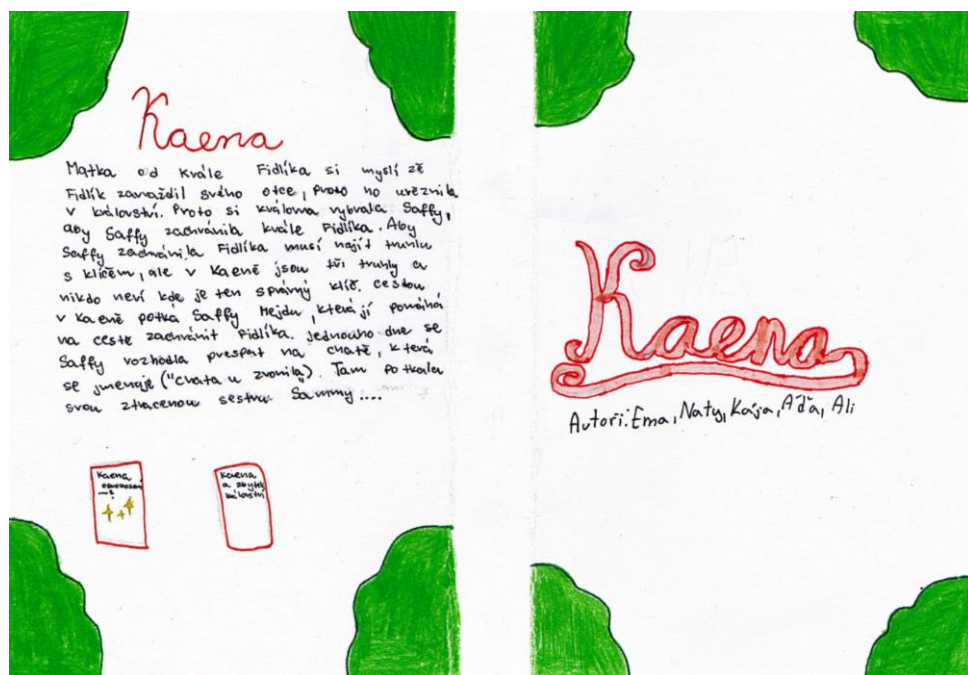 Kaena
Matka od krále Fidlíka si myslí zě
Fidlík zavraždil svého otce, proto ho uvěznila
v království. Proto si královna vybrala Saffy,
aby Saffy zachránila krále Fidlíka. Aby
Saffy zachránila Fidlíka musí najít truhlu
s klíčem, ale v Kaeně jsou tři truhly a
nikdo neví kde je ten správný klíč. cestou
v Kaeně potká Saffy Hejdu, která jí pomáhá
na cestě zachránit Fidlíka. jednoho dne se
Saffy vozhodla prespat na chatě, která
se jmenuje ("Chata u zvonila). Tam potkala
svou ztracenou sestru Sammy....
Kaena
Kaena
a zbytek
království
Kaena
Autoři: Ema, Naty, Kája, Áďa, Ali